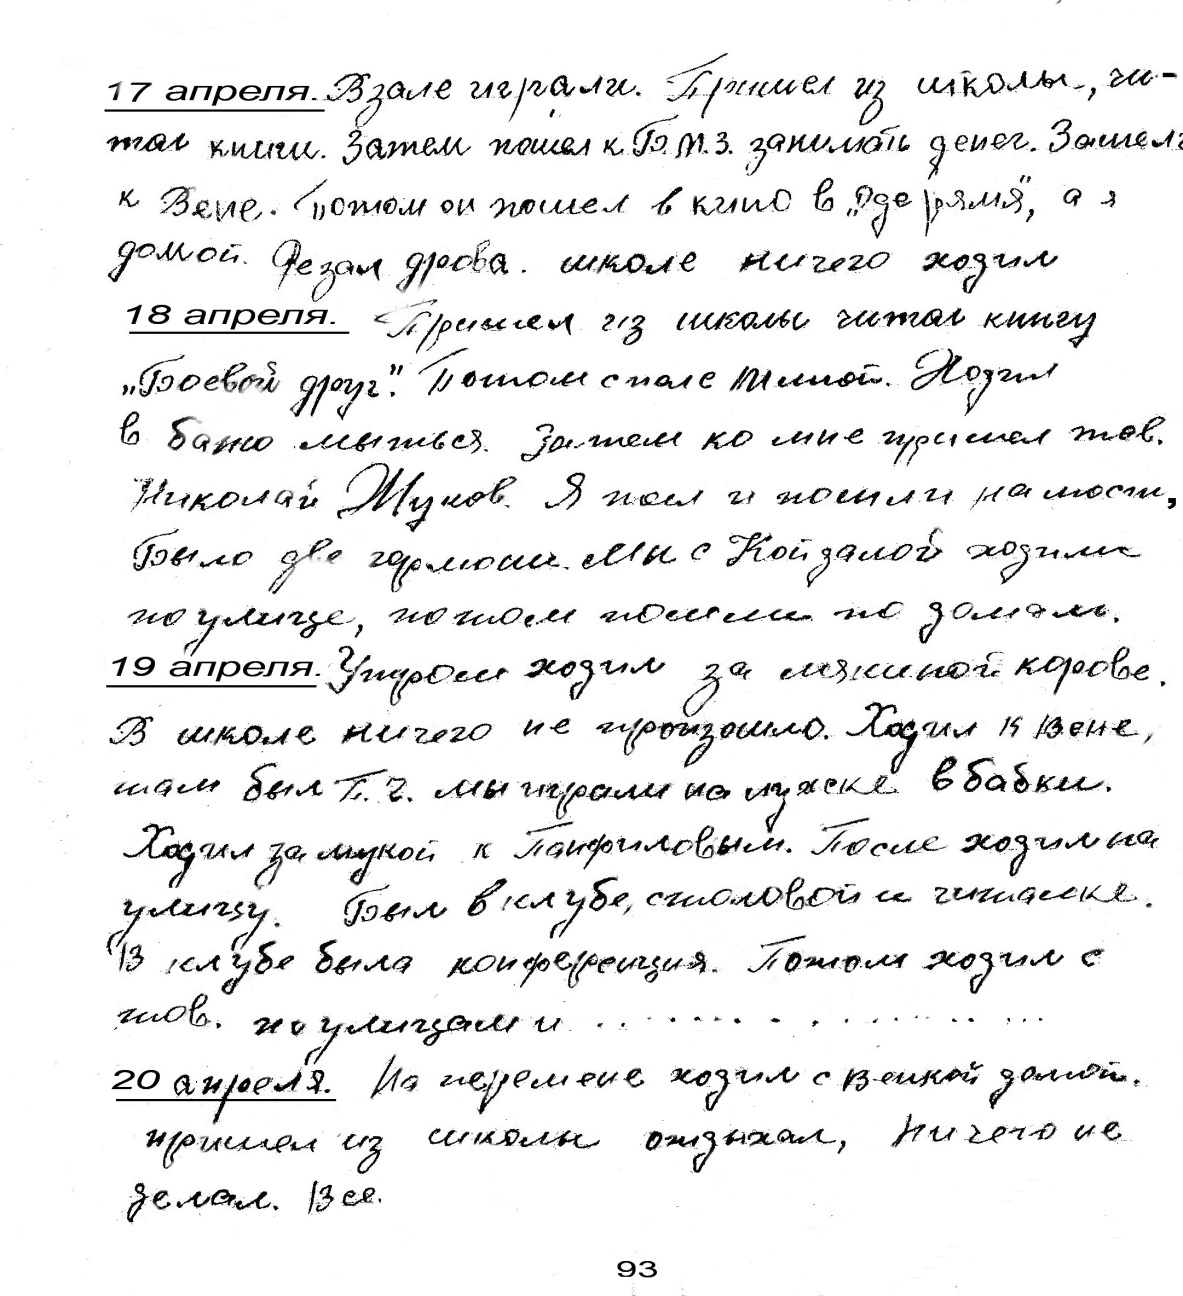 17 апреля. В зале играли. Пришел из школы, чи-
тал книги. Затем пошел к Б.М.З. занимать денег. Зашел
к Вене. Потом он пошел в кино в а я
домой. Резал дрова. школе ничего ходил
18 апреля. Пришел из школы читал книгу
„Боевой друг". Потом с поле Ходил
в баню мыться. Затем ко мне пришел тов.
Николай Жуков. Я поел и пошли на мост,
Было две гармони. Мы с Койдалой ходили
по улице, потом пошли по домам.
19 апреля. Утром ходил за мякиной корове.
В школе ничего не произошло. Ходил к Вене,
там был П.Ч. мы играли на лужске в бабки.
Ходил за мукой к Панфиловым. После ходил на
улицу. Был в клубе, столовой и читалке.
В клубе была конференция. Потом ходил с
тов. по улицам и . . . . . . . . . . . . . . . . .
20 апреля. На перемене ходил с Венкой домой.
пришел из школы отдыхал, Ничего не
делал. Все.
93